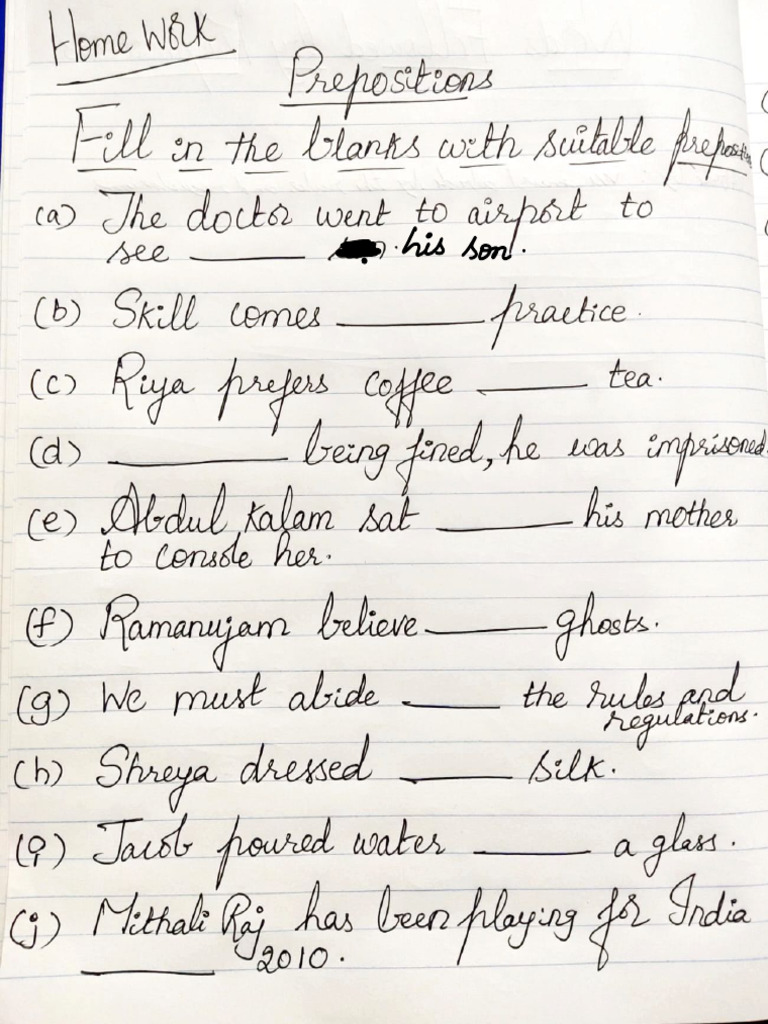 Home Work
Prepositions
Fill in the blanks with suitable
(a) The doctor went to airport to
see ______ his son.
(b) Skill comes ______ practice.
(c) Riya prefers coffee ______ tea.
(d) ______ being fined, he was imprisoned.
(e) Abdul Kalam sat ______ his mother
to console her.
(f) Ramanujam believe ______ ghosts.
(g) We must abide ______ the rules and
regulations.
(h) Shreya dressed ______ silk.
(i) Jacob poured water ______ a glass.
(j) Mithali Raj has been playing for India
______ 2010.